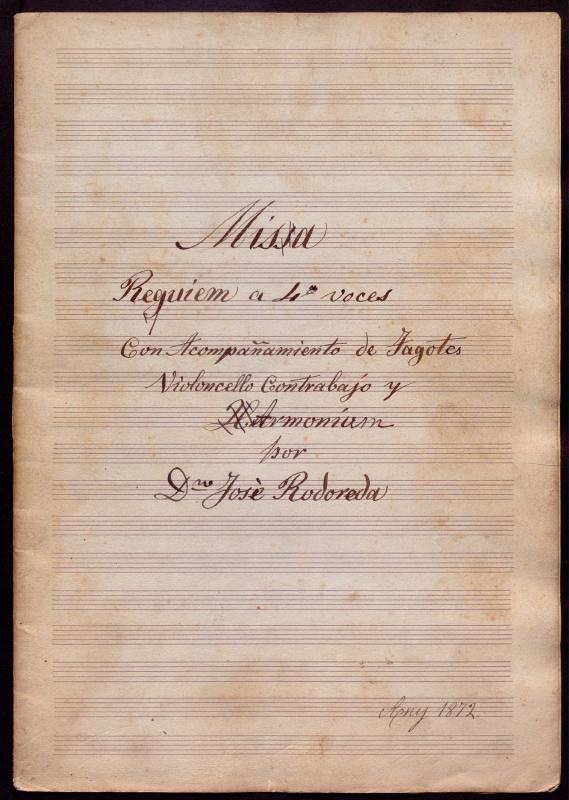 Missa
Requiem a 4ª voces
Con Acompañamiento de Fagotes
Violoncello Contrabajo y
Armonium
por
Dn José Rodoreda
Any 1872